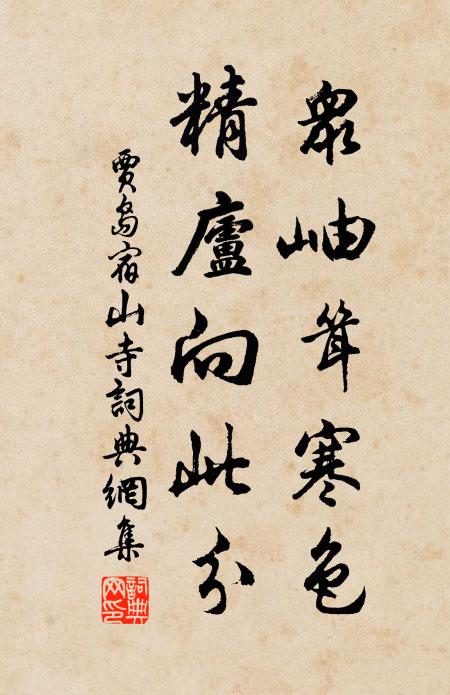 眾岫耸寒色
精廬向此分
賈島宿山寺詞典網集
詞典網印